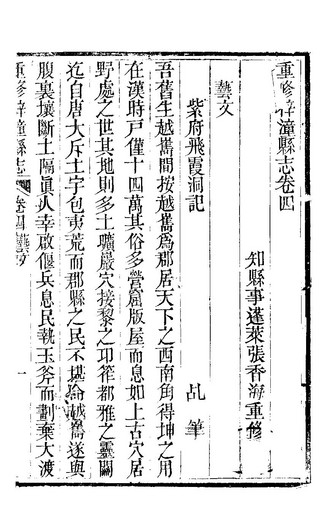 重修梓潼縣志卷四
知縣事蓬萊張香海重修
藝文
紫府飛霞洞記
乩筆
吾舊生越嶲間按越嶲爲郡居天下之西南角得坤之用
在漢時戸僅十四萬其俗多營窟版屋而息如上古穴居
野處之世其地則多土壙巖穴接黎之邛筰都雅之靈關
迄自唐大斥土宇包夷荒而郡縣之民不堪命越嶲遂與
腹裏壤斷土隔眞人幸啟偃兵息民執玉斧而劃棄大渡
重修梓潼縣志
卷四藝文
一